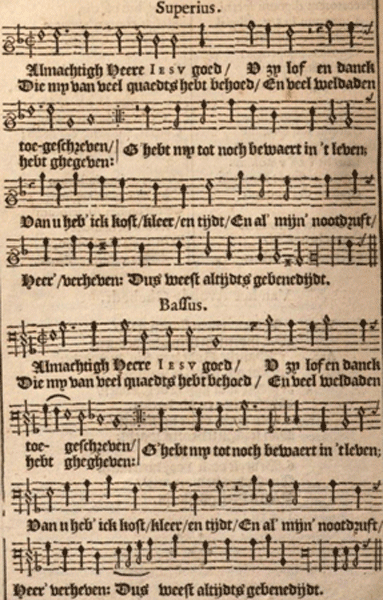 Superius.
Almachtigh Heere IESV goed/ V zy lof en danck
Die my van veel quaedts hebt behoed/ En veel weldaden
toe-geschreven/ G'hebt my tot noch bewaert in 't leven;
hebt ghegeven:
Van u heb' ick kost/kleer/en tijdt/En al' mijn' nootdruft/
Heer'/verheven: Dus weest altijdts gebenedijdt.
Bassus.
Almachtigh Heere IESV goed/ V zy lof en danck
Die my van veel quaedts hebt behoed/ En veel weldaden
toe- geschreven/ G'hebt my tot noch bewaert in 'tleven;
hebt ghegheven:
Van u heb' ick kost/kleer/en tijdt/En al' mijn' nootdruft/
Heer' verheven: Dus weest altijdts gebenedijdt.